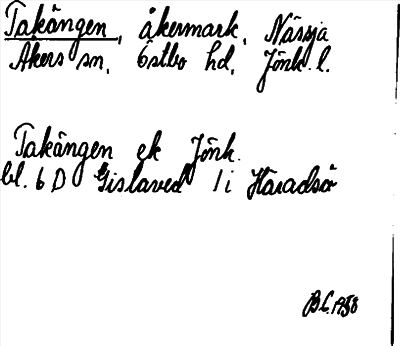 Takängen, åkermark, Nässja
Åkers sn, Östbo hd, Jönk. l.
Takängen ek Jönk.
bl. 6 D Gislaved 1 i Häradsö